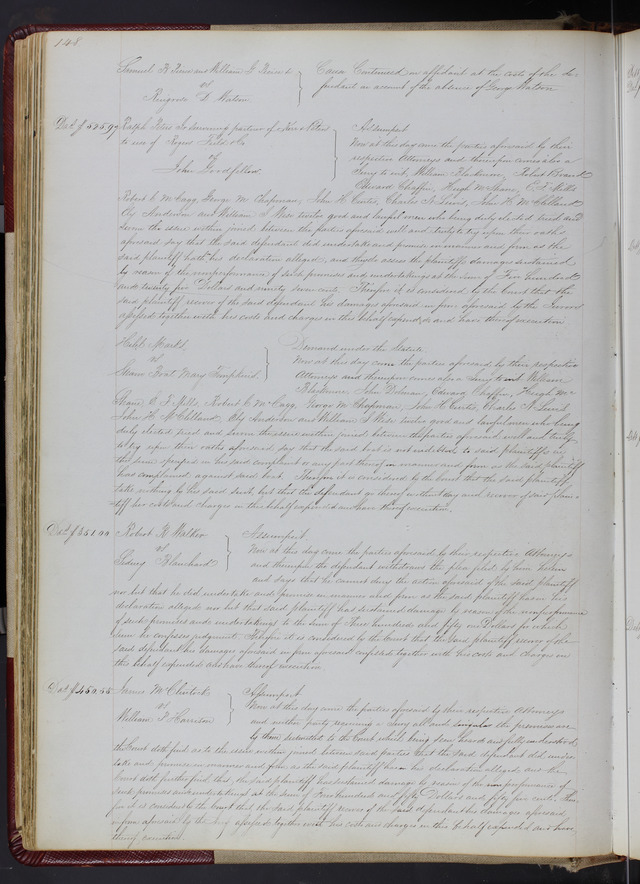 148
Samuel R. and William J.
vs
D. Watson
Cause Continued on affidavit at the costs of the de-
fendant on account of the absence of George Watson
Dad. $525.97
Ralph partner of
to use of Field & Co
vs
John Goodfellow
Assumpsit
Now at this day come the parties aforesaid by their
respective Attorneys and thereupon comes also a
Jury to wit, William Blackmore, Robert
Edward Chaffin, Hugh McShane, O. F. Mills
Robert C. McCagg, George M. Chapman, John H. Curtis, Charles St. Lewis, John H. McClelland
Aby Anderson and William S. Wise twelve good and lawful men who being duly elected tried and
sworn the issue within joined between the parties aforesaid well and truly to try upon their oaths
aforesaid say that the said defendant did undertake and promise in manner and form as the
said plaintiff hath his declaration alleged, and they do assess the plaintiffs damages sustained
by reason of the nonperformance of said promises and undertakings at the sum of Five hundred
and twenty five Dollars and ninety seven cents. Therefore it is considered by the Court that the
said plaintiff recover of the said defendant his damages aforesaid in form aforesaid by the Jurors
assessed together with his costs and charges in this behalf expended and have thereof execution
Marks,
vs
Steam Boat Mary Tompkins
Demand under the Statute
Now at this day come the parties aforesaid by their respective
Attorneys and thereupon comes also a Jury to wit William
Blackmore, John Edward Chaffin, Hugh Mc-
Shane, O. F. Mills, Robert C. McCagg, George M. Chapman, John H. Curtis, Charles St. Lewis,
John H. McClelland, Aby Anderson and William S. Wise twelve good and lawful men who being
duly elected tried and sworn the issue within joined between the parties aforesaid well and truly
to try upon their oaths aforesaid say that the said boat is not indebted to said plaintiff in
the sum specified in his said complaint or any part thereof in manner and form as the said plaintiff
has complained against said boat. Therefore it is considered by the Court that the said plaintiff
take nothing by his said suit, but that the defendant go thereof without day and recover of said plain-
tiff her costs and charges in this behalf expended and have thereof execution
Dad. $351.00
Robert H. Walker
vs
Sidney Blanchard
Assumpsit,
Now at this day come the parties aforesaid by their respective Attorneys
and thereupon the defendant withdraws the plea filed by him herein
and says that he cannot deny the action aforesaid of the said plaintiff
nor but that he did undertake and promise in manner and form as the said plaintiff has in his
declaration alleged nor but that said plaintiff has sustained damage by reason of the nonperformance
of said promises and undertakings to the sum of Three hundred and fifty one Dollars for which
sum he confesses judgment. Therefore it is considered by the Court that the said plaintiff recover of the
said defendant his damages aforesaid in form aforesaid confessed together with his costs and charges in
this behalf expended and have thereof execution.
Dad. $450.55
James McClintock
vs
William P. Harrison
Assumpsit
Now at this day come the parties aforesaid by their respective Attorneys
and neither party requiring a Jury all and singular the premises are
by them submitted to the Court which being seen heard and fully understood
the Court doth find as to the issue within joined between said parties that the said defendant did under-
take and promise in manner and form as the said plaintiff has in his declaration alleged, and the
Court doth further find that the said plaintiff has sustained damage by reason of the nonperformance of
such promises and undertakings at the sum of Four hundred and fifty Dollars and fifty five cents. There-
fore it is considered by the Court that the said plaintiff recover of the said defendant his damages aforesaid
in form aforesaid by the assessed together with his costs and charges in this behalf expended and have
thereof execution